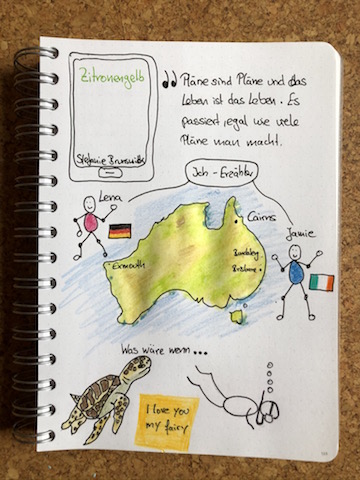 Zitronengelb
Stefanie Brunswick
" Pläne sind Pläne und das
Leben ist das Leben. Es
passiert, egal wie viele
Pläne man macht.
Ich-Erzähler
Lena
Jamie
Cairns
Exmouth
Brisbane
Was wäre wenn...
I love you
my fairy